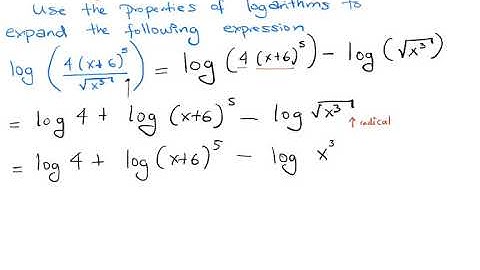 Use the properties of logarithms to
expand the following expression
log (4(x+6)^5/√x^3) = log (4 (x+6)^5) − log (√x^3)
= log 4 + log (x+6)^5 − log √x^3
↑ radical
= log 4 + log (x+6)^5 − log x^3